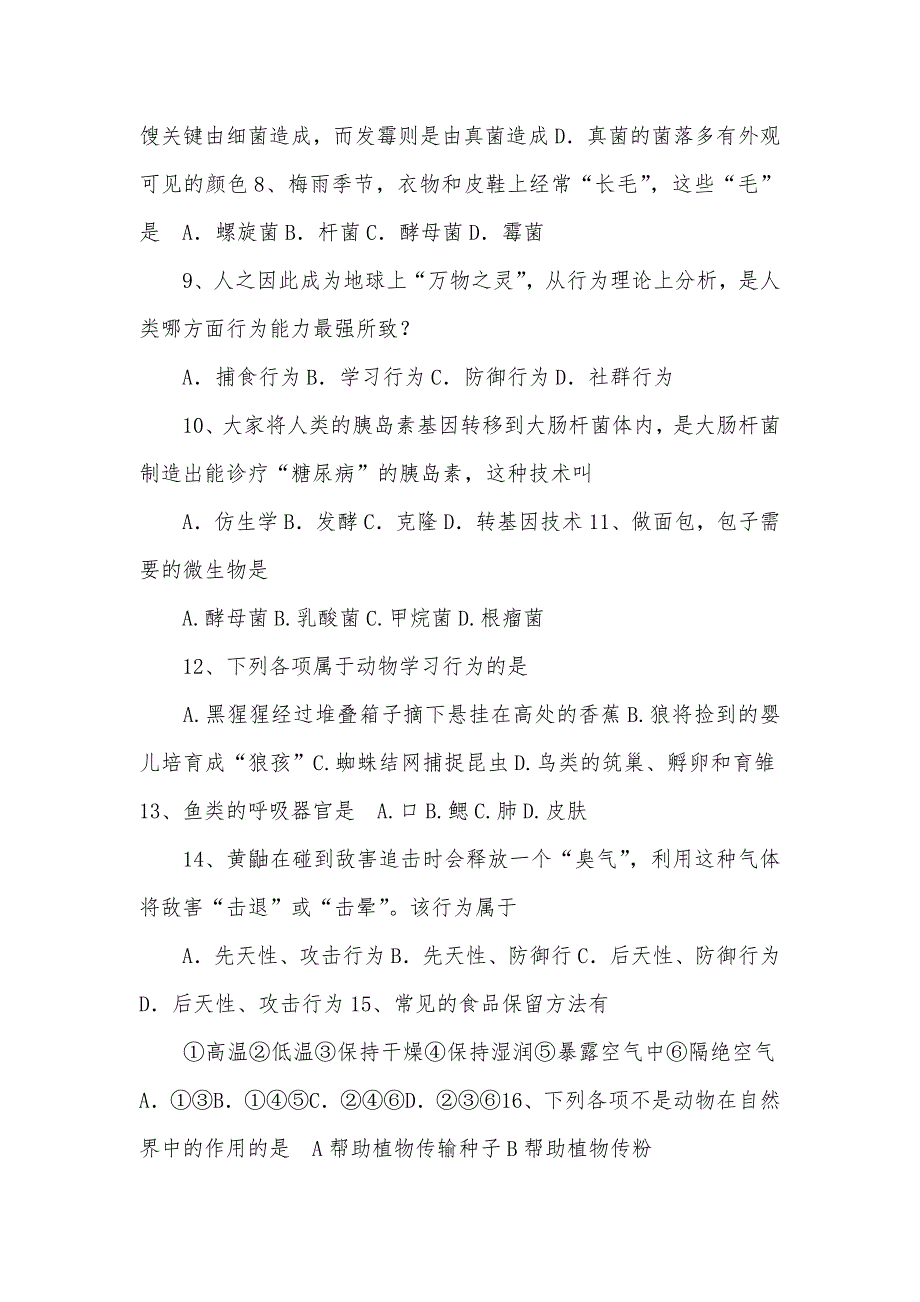 馊关键由细菌造成，而发霉则是由真菌造成D．真菌的菌落多有外观
可见的颜色8、梅雨季节，衣物和皮鞋上经常“长毛”，这些“毛”
是　A．螺旋菌B．杆菌C．酵母菌D．霉菌
9、人之因此成为地球上“万物之灵”，从行为理论上分析，是人
类哪方面行为能力最强所致？
A．捕食行为B．学习行为C．防御行为D．社群行为
10、大家将人类的胰岛素基因转移到大肠杆菌体内，是大肠杆菌
制造出能诊疗“糖尿病”的胰岛素，这种技术叫
A．仿生学B．发酵C．克隆D．转基因技术11、做面包，包子需
要的微生物是
A.酵母菌B.乳酸菌C.甲烷菌D.根瘤菌
12、下列各项属于动物学习行为的是
A.黑猩猩经过堆叠箱子摘下悬挂在高处的香蕉B.狼将捡到的婴
儿培育成“狼孩”C.蜘蛛结网捕捉昆虫D.鸟类的筑巢、孵卵和育雏
13、鱼类的呼吸器官是　A.口B.鳃C.肺D.皮肤
14、黄鼬在碰到敌害追击时会释放一个“臭气”，利用这种气体
将敌害“击退”或“击晕”。该行为属于
A．先天性、攻击行为B．先天性、防御行C．后天性、防御行为
D．后天性、攻击行为15、常见的食品保留方法有
①高温②低温③保持干燥④保持湿润⑤暴露空气中⑥隔绝空气
A．①③B．①④⑤C．②④⑥D．②③⑥16、下列各项不是动物在自然
界中的作用的是　A帮助植物传输种子B帮助植物传粉